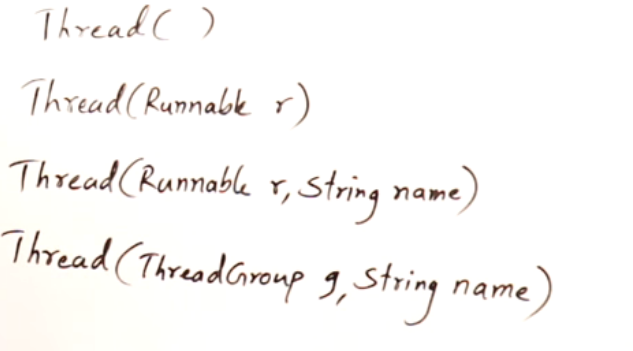 Thread( )
Thread(Runnable r)
Thread(Runnable r, String name)
Thread(ThreadGroup g, String name)